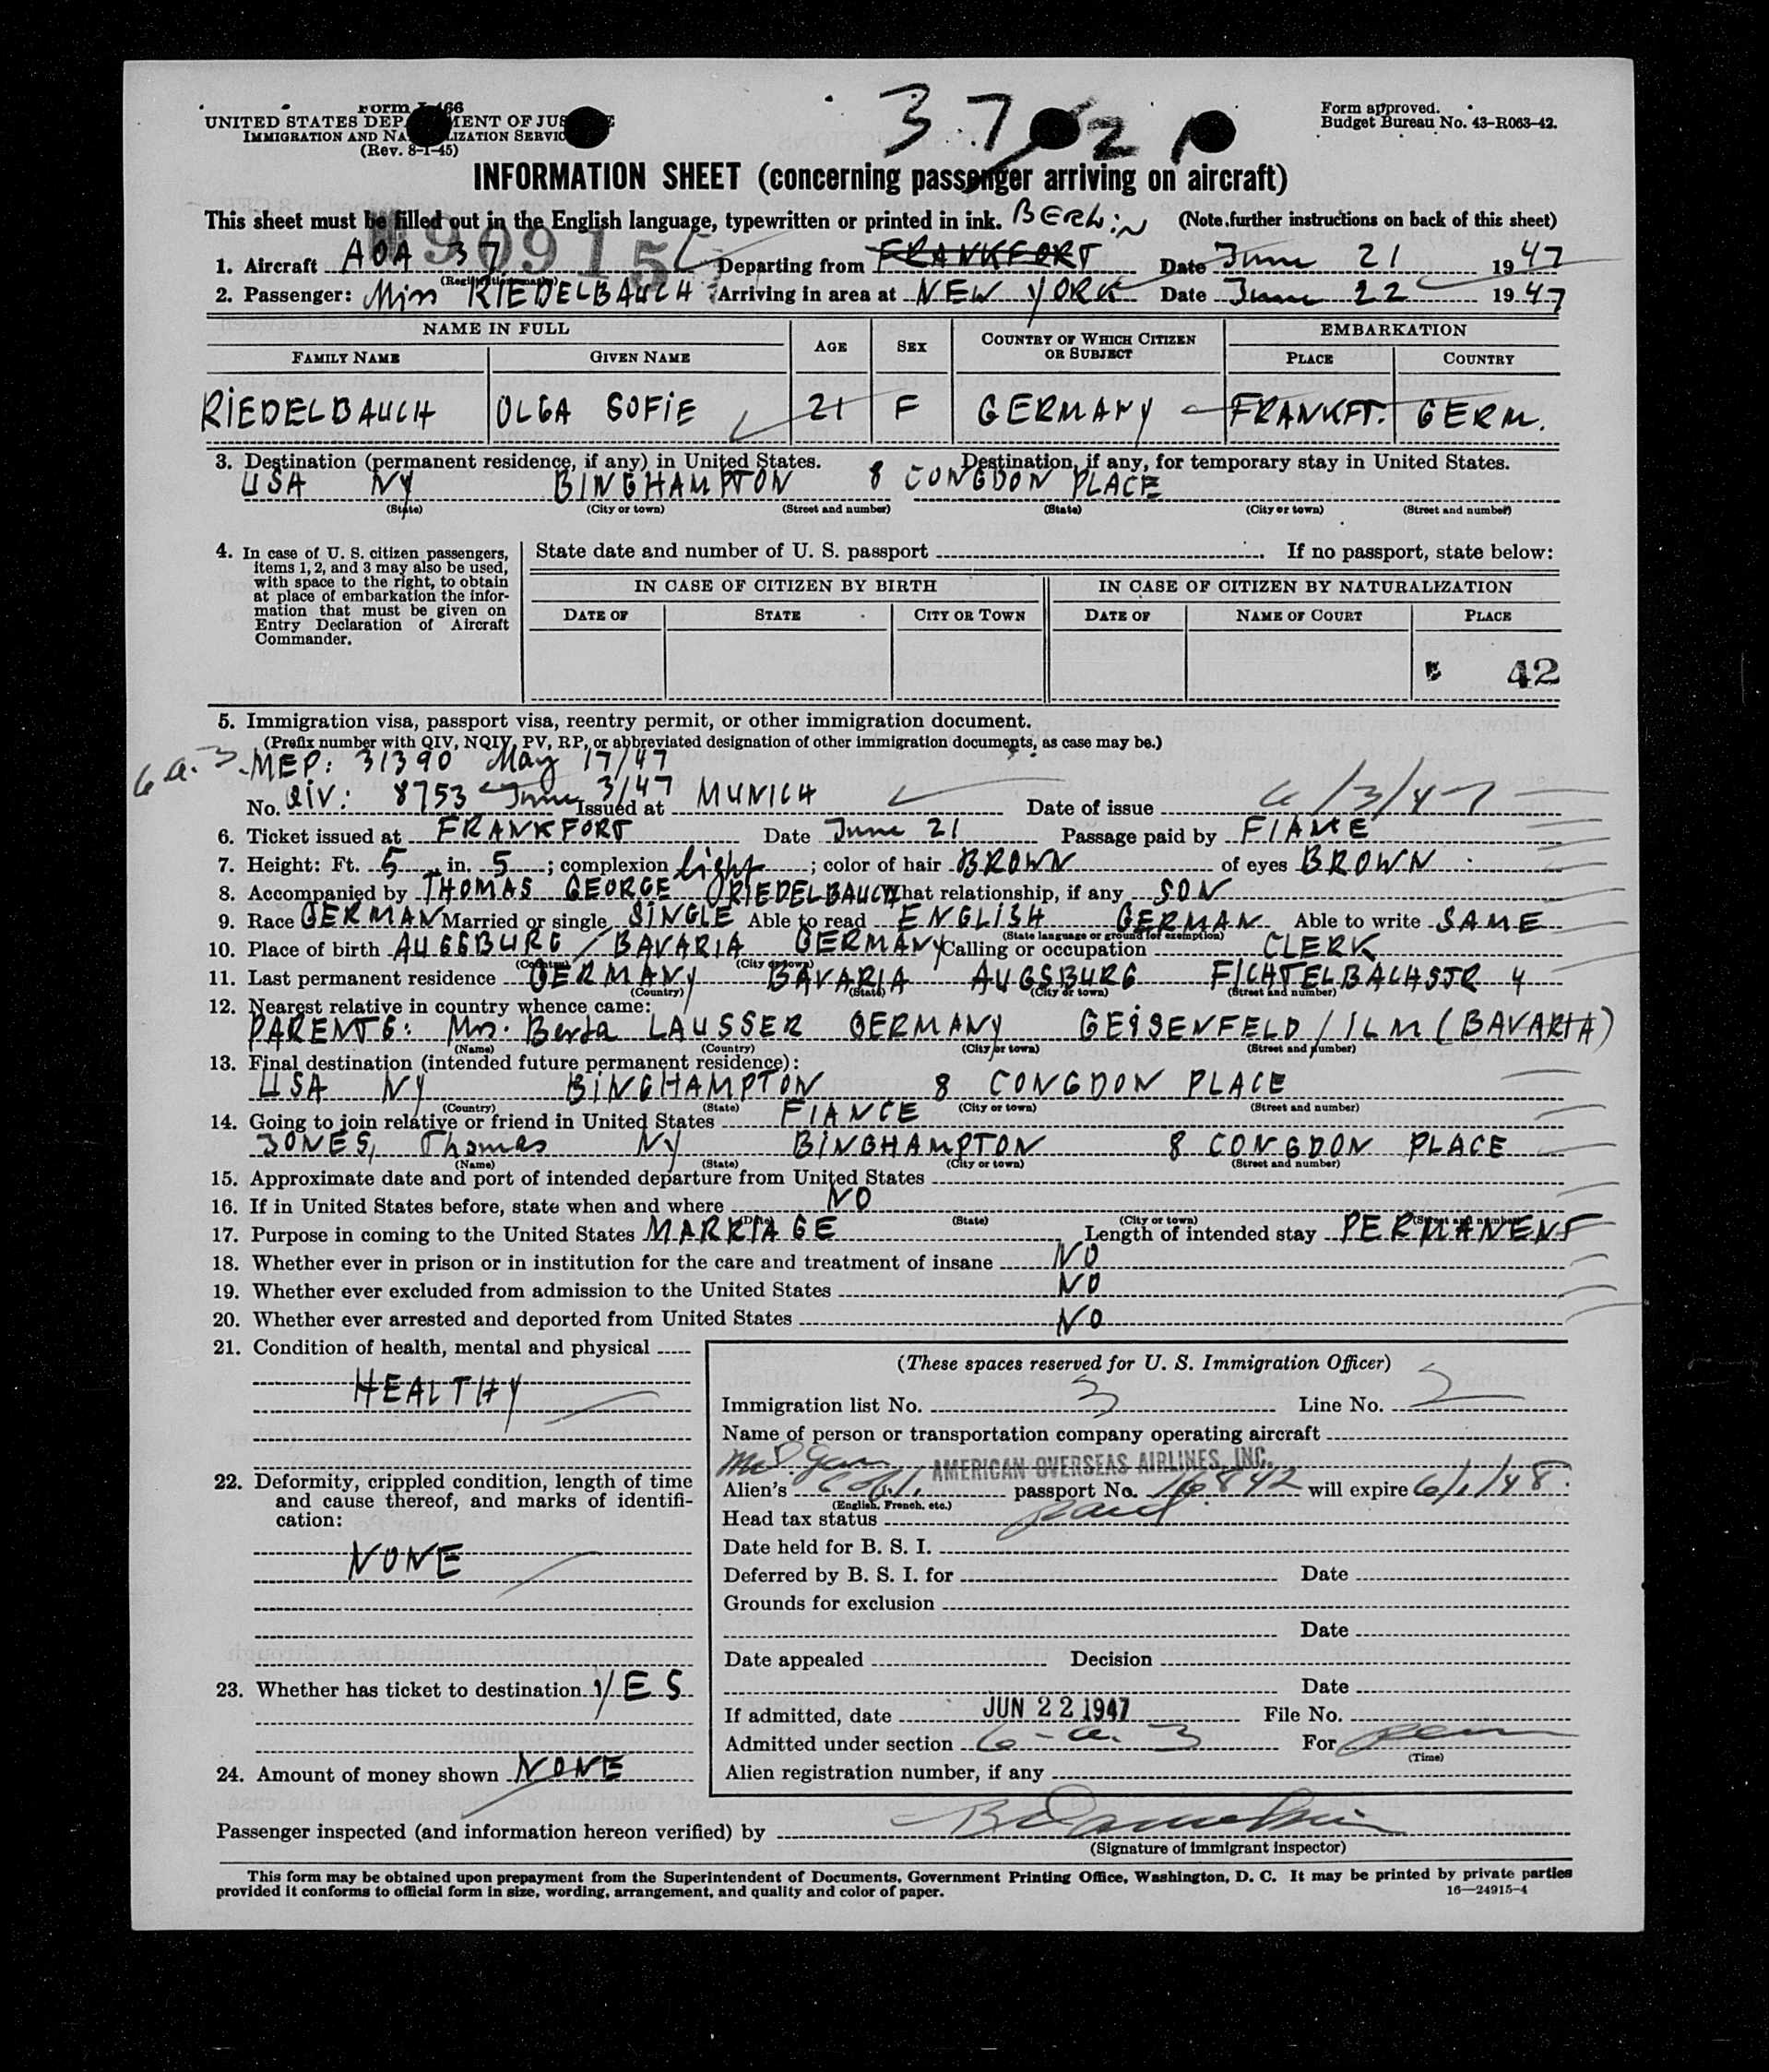 Form I-466
UNITED STATES DEPARTMENT OF JUSTICE
IMMIGRATION AND NATURALIZATION SERVICE
(Rev. 8-1-45)
37 21
Form approved.
Budget Bureau No. 43-R063-42.
INFORMATION SHEET (concerning passenger arriving on aircraft)
This sheet must be filled out in the English language, typewritten or printed in ink. BERLiN (Note further instructions on back of this sheet)
90915
1. Aircraft AOA 37 Departing from FRANKFORT Date June 21 1947
(Registration mark)
2. Passenger: Miss RIEDELBAUCH Arriving in area at NEW YORK Date June 22 1947
NAME IN FULL
FAMILY NAME GIVEN NAME AGE SEX COUNTRY OF WHICH CITIZEN OR SUBJECT EMBARKATION PLACE COUNTRY
RIEDELBAUCH OLGA SOFIE 21 F GERMANY FRANKFT. GERM.
3. Destination (permanent residence, if any) in United States. Destination, if any, for temporary stay in United States.
USA NY BINGHAMPTON 8 CONGDON PLACE
(State) (City or town) (Street and number) (State) (City or town) (Street and number)
4. In case of U. S. citizen passengers, items 1, 2, and 3 may also be used, with space to the right, to obtain at place of embarkation the information that must be given on Entry Declaration of Aircraft Commander.
State date and number of U. S. passport . If no passport, state below:
IN CASE OF CITIZEN BY BIRTH IN CASE OF CITIZEN BY NATURALIZATION
DATE OF STATE CITY OR TOWN DATE OF NAME OF COURT PLACE
42
5. Immigration visa, passport visa, reentry permit, or other immigration document.
(Prefix number with QIV, NQIV, PV, RP, or abbreviated designation of other immigration documents, as case may be.)
6 a. 3 MEP: 31390 May 17/47
No. QIV: 8753 June 3/47 Issued at MUNICH Date of issue 6/3/47
6. Ticket issued at FRANKFORT Date June 21 Passage paid by FIANCE
7. Height: Ft. 5 in. 5; complexion light; color of hair BROWN of eyes BROWN
8. Accompanied by THOMAS GEORGE RIEDELBAUCH What relationship, if any SON
9. Race GERMAN Married or single SINGLE Able to read ENGLISH GERMAN Able to write SAME
(State language or ground for exemption)
10. Place of birth AUGSBURG / BAVARIA GERMANY Calling or occupation CLERK
(Country) (City or town)
11. Last permanent residence GERMANY BAVARIA AUGSBURG FICHTELBACHSTR 4
(Country) (State) (City or town) (Street and number)
12. Nearest relative in country whence came:
PARENTS: Mrs. Berta LAUSSER GERMANY GEISENFELD / ILM (BAVARIA)
(Name) (Country) (City or town) (Street and number)
13. Final destination (intended future permanent residence):
USA NY BINGHAMPTON 8 CONGDON PLACE
(Country) (State) (City or town) (Street and number)
14. Going to join relative or friend in United States FIANCE
JONES, Thomas NY BINGHAMPTON 8 CONGDON PLACE
(Name) (State) (City or town) (Street and number)
15. Approximate date and port of intended departure from United States
16. If in United States before, state when and where NO
(Date) (State) (City or town) (Street and number)
17. Purpose in coming to the United States MARRIAGE Length of intended stay PERMANENT
18. Whether ever in prison or in institution for the care and treatment of insane NO
19. Whether ever excluded from admission to the United States NO
20. Whether ever arrested and deported from United States NO
21. Condition of health, mental and physical
HEALTHY
22. Deformity, crippled condition, length of time and cause thereof, and marks of identification:
NONE
23. Whether has ticket to destination YES
24. Amount of money shown NONE
(These spaces reserved for U. S. Immigration Officer)
Immigration list No. 3 Line No. 2
Name of person or transportation company operating aircraft
AMERICAN OVERSEAS AIRLINES, INC.
Alien's passport No. 16842 will expire 6/1/48
(English, French, etc.)
Head tax status paid
Date held for B. S. I.
Deferred by B. S. I. for Date
Grounds for exclusion
Date
Date appealed Decision
Date
If admitted, date JUN 22 1947 File No.
Admitted under section 6-a. 3 For perm
(Time)
Alien registration number, if any
Passenger inspected (and information hereon verified) by
(Signature of immigrant inspector)
This form may be obtained upon prepayment from the Superintendent of Documents, Government Printing Office, Washington, D. C. It may be printed by private parties
provided it conforms to official form in size, wording, arrangement, and quality and color of paper. 16—24915-4